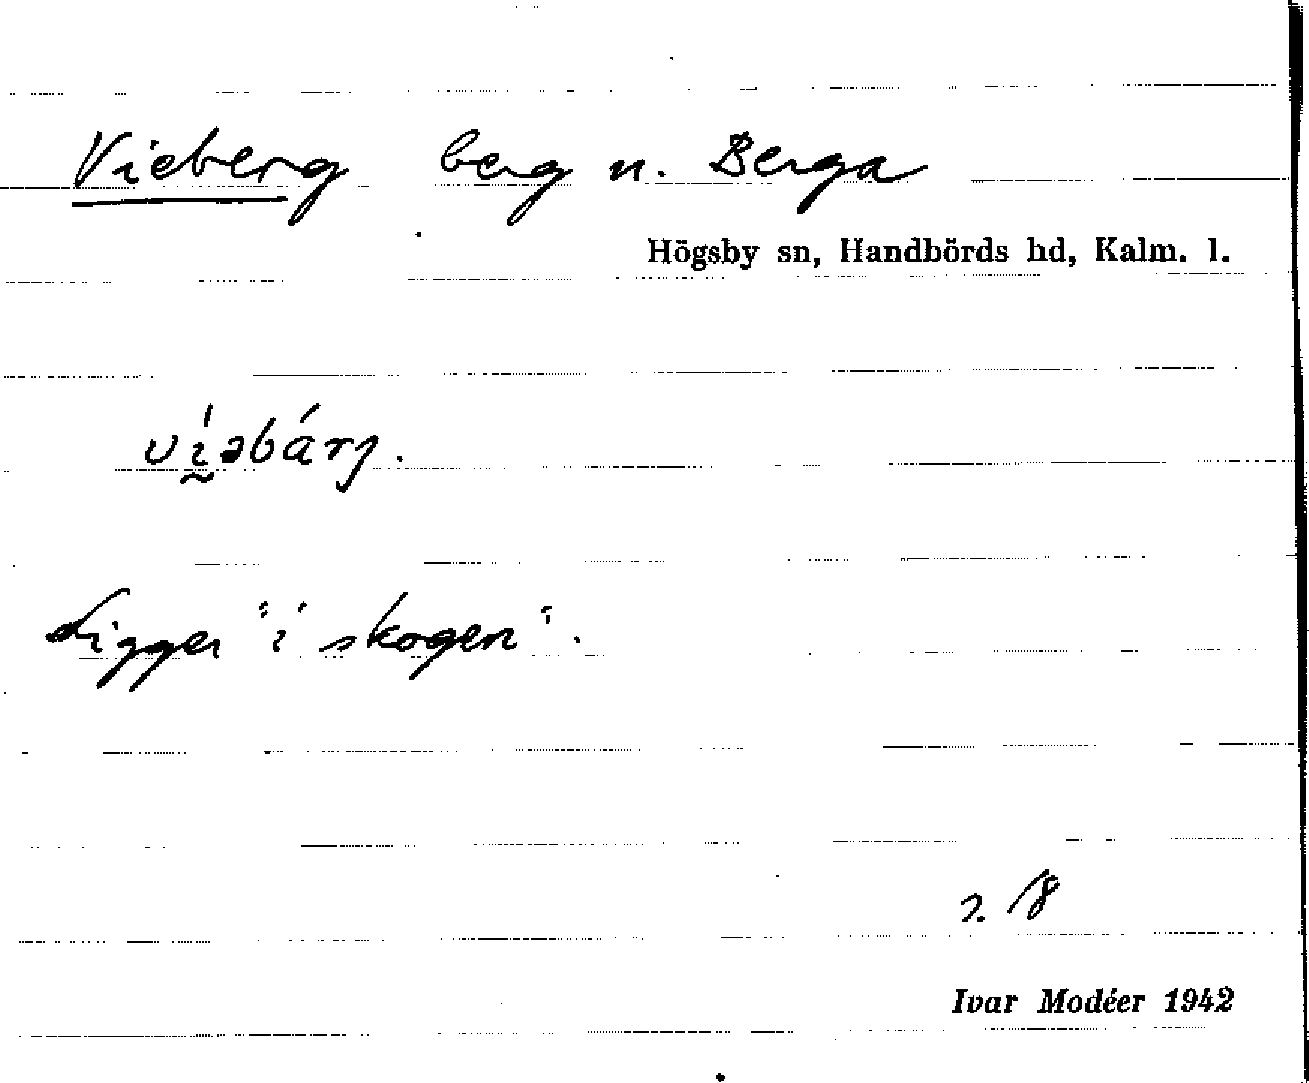 Vieberg berg n. Berga
Högsby sn, Handbörds hd, Kalm. l.
vḭ́əbárj.
Ligger "i skogen".
s. 18
Ivar Modéer 1942